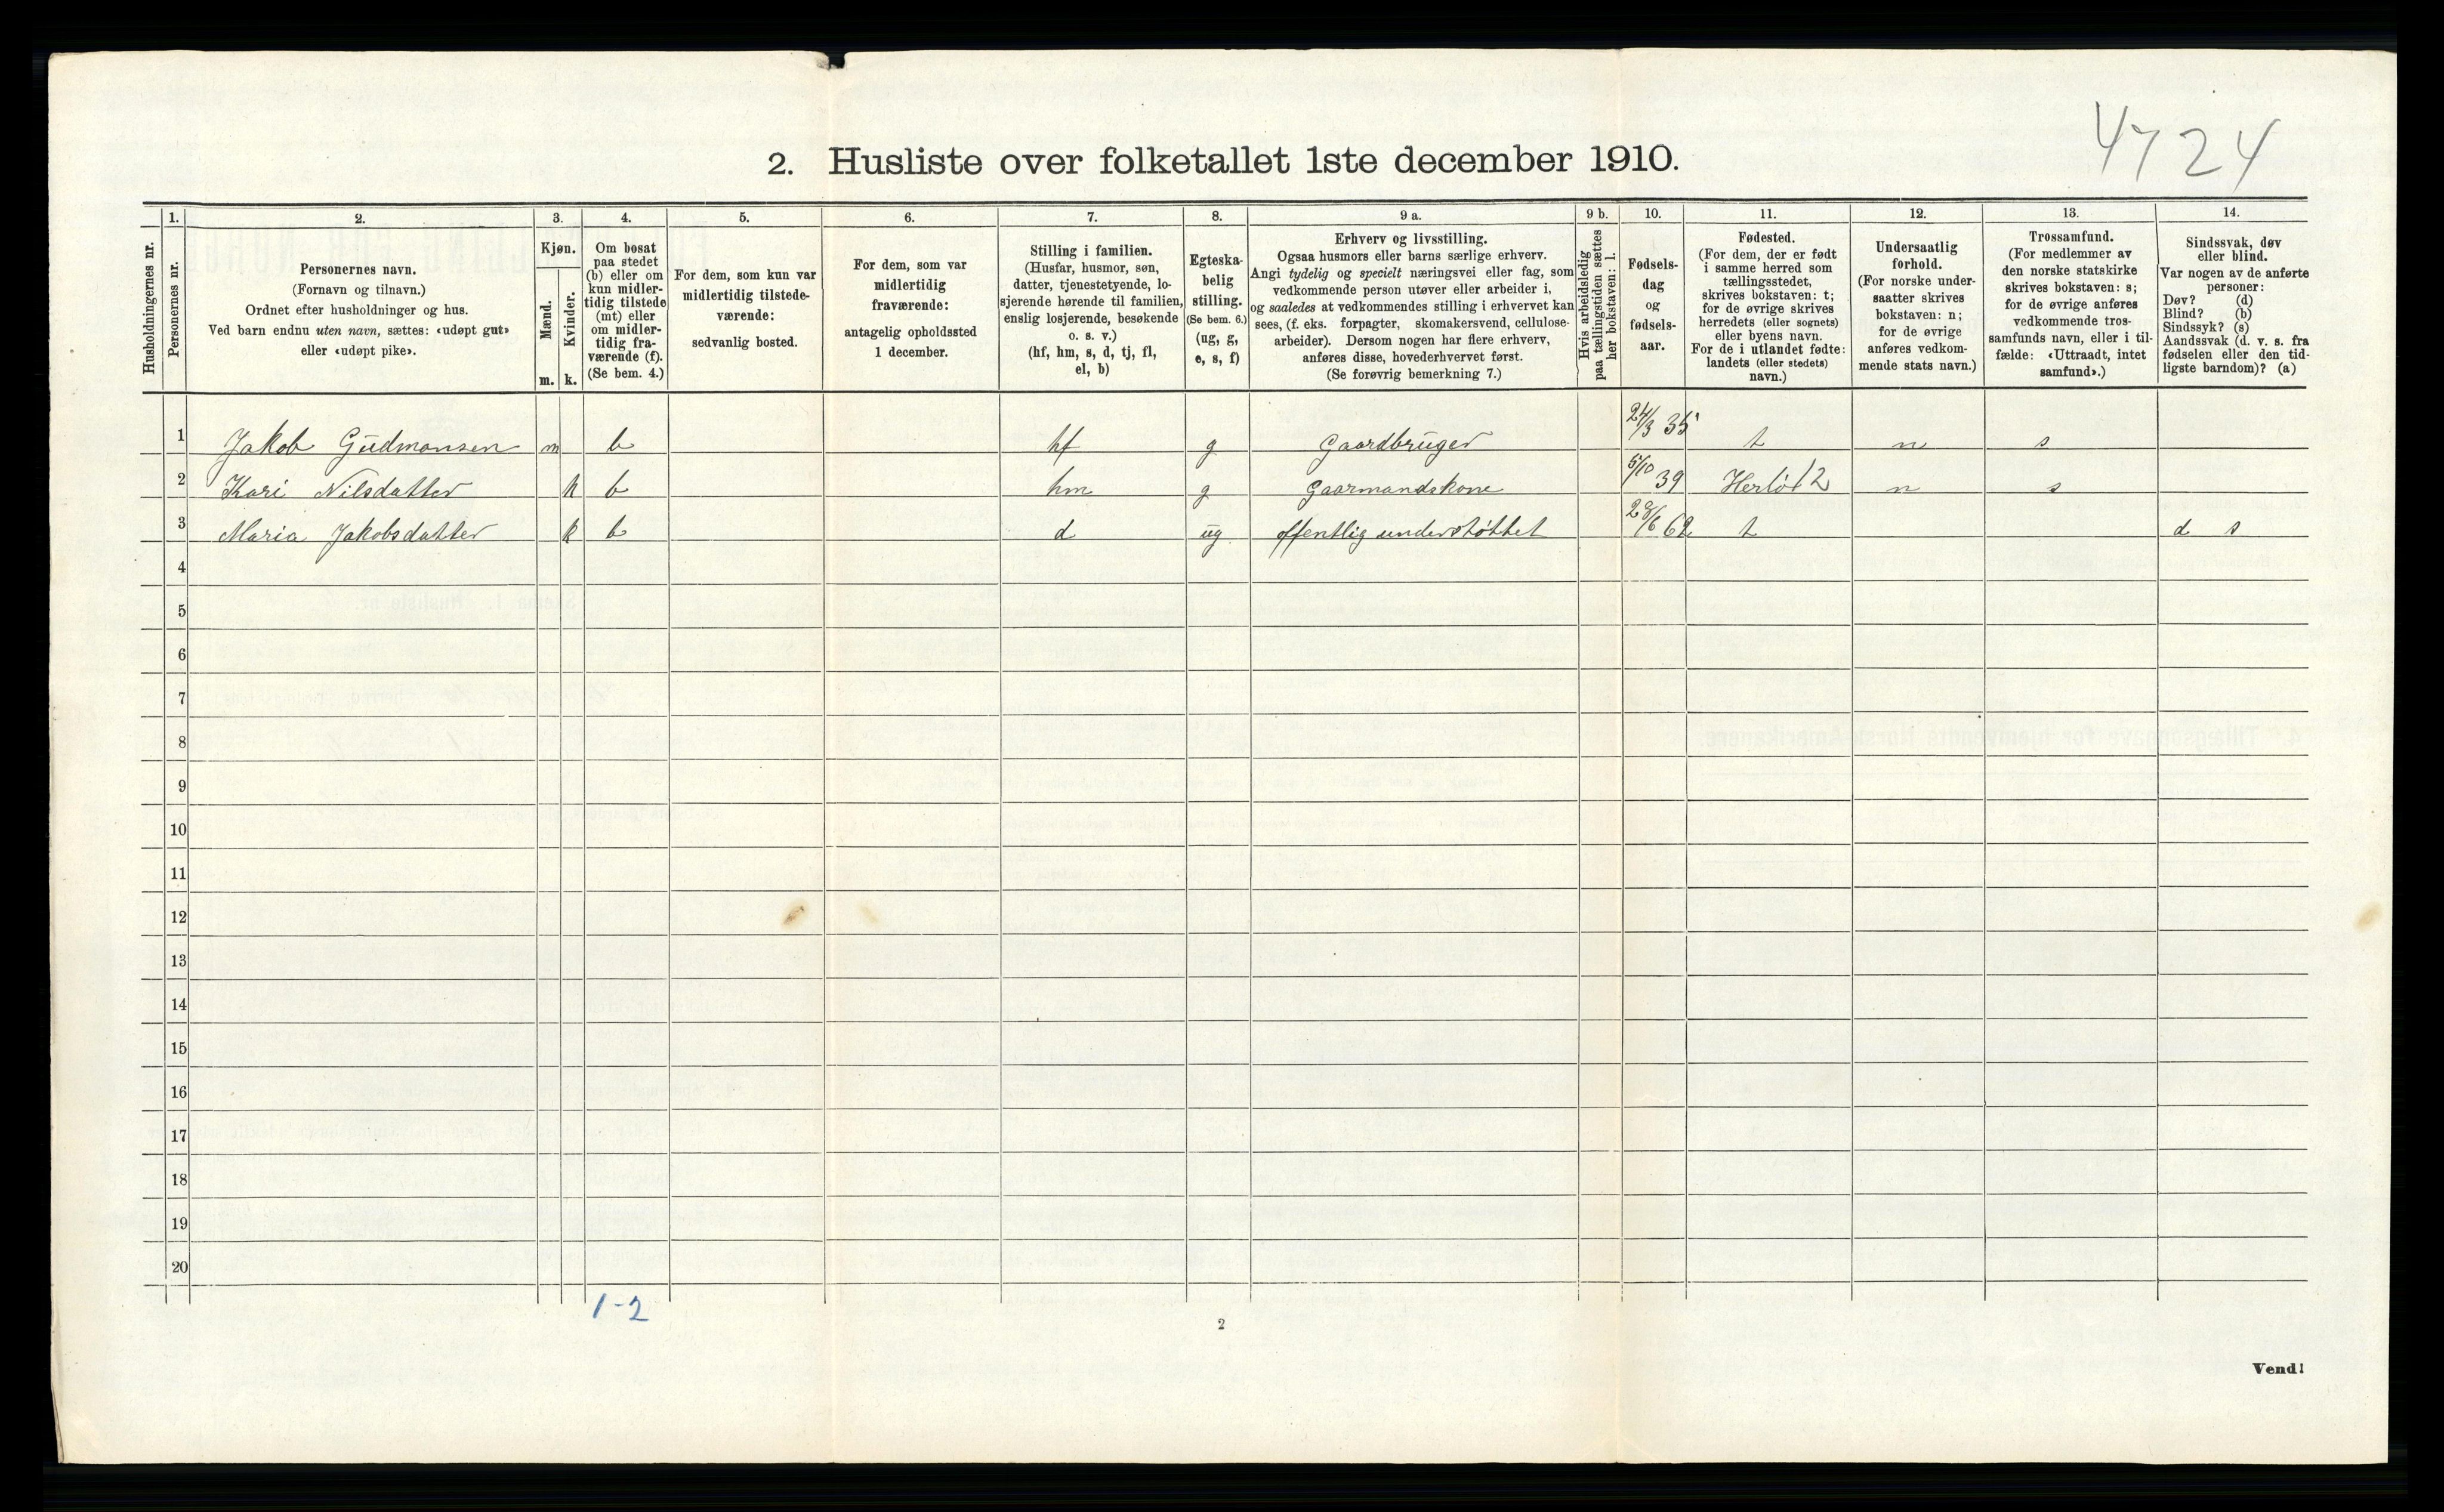 4724
2. Husliste over folketallet 1ste december 1910.
Husholdningernes nr.
1. Personernes nr.
2. Personernes navn.
(Fornavn og tilnavn.)
Ordnet efter husholdninger og hus.
Ved barn endnu uten navn, sættes: «udøpt gut»
eller «udøpt pike».
3. Kjøn.
Mænd. m.
Kvinder. k.
4. Om bosat
paa stedet
(b) eller om
kun midler-
tidig tilstede
(mt) eller
om midler-
tidig fra-
værende (f).
(Se bem. 4.)
5. For dem, som kun var
midlertidig tilstede-
værende:
sedvanlig bosted.
6. For dem, som var
midlertidig
fraværende:
antagelig opholdssted
1 december.
7. Stilling i familien.
(Husfar, husmor, søn,
datter, tjenestetyende, lo-
sjerende hørende til familien,
enslig losjerende, besøkende
o. s. v.)
(hf, hm, s, d, tj, fl,
el, b)
8. Egteska-
belig
stilling.
(Se bem. 6.)
(ug, g,
e, s, f)
9 a. Erhverv og livsstilling.
Ogsaa husmors eller barns særlige erhverv.
Angi tydelig og specielt næringsvei eller fag, som
vedkommende person utøver eller arbeider i,
og saaledes at vedkommendes stilling i erhvervet kan
sees, (f. eks. forpagter, skomakersvend, cellulose-
arbeider). Dersom nogen har flere erhverv,
anføres disse, hovederhvervet først.
(Se forøvrig bemerkning 7.)
9 b. Hvis arbeidsledig
paa tællingstiden sættes
her bokstaven: l.
10. Fødsels-
dag
og
fødsels-
aar.
11. Fødested.
(For dem, der er født
i samme herred som
tællingsstedet,
skrives bokstaven: t;
for de øvrige skrives
herredets (eller sognets)
eller byens navn.
For de i utlandet fødte:
landets (eller stedets)
navn.)
12. Undersaatlig
forhold.
(For norske under-
saatter skrives
bokstaven: n;
for de øvrige
anføres vedkom-
mende stats navn.)
13. Trossamfund.
(For medlemmer av
den norske statskirke
skrives bokstaven: s;
for de øvrige anføres
vedkommende tros-
samfunds navn, eller i til-
fælde: «Uttraadt, intet
samfund».)
14. Sindssvak, døv
eller blind.
Var nogen av de anførte
personer:
Døv? (d)
Blind? (b)
Sindssyk? (s)
Aandssvak (d. v. s. fra
fødselen eller den tid-
ligste barndom)? (a)
1 Jakob Gudmonsen m b hf g Gaardbruger 24/3 35 t n s
2 Kari Nilsdatter k b hm g Gaarmandskone 5/10 39 Herlø 12 n s
3 Maria Jakobsdatter k b d ug offentlig understøttet 28/6 62 t d s
4
5
6
7
8
9
10
11
12
13
14
15
16
17
18
19
20
1-2
2
Vend!